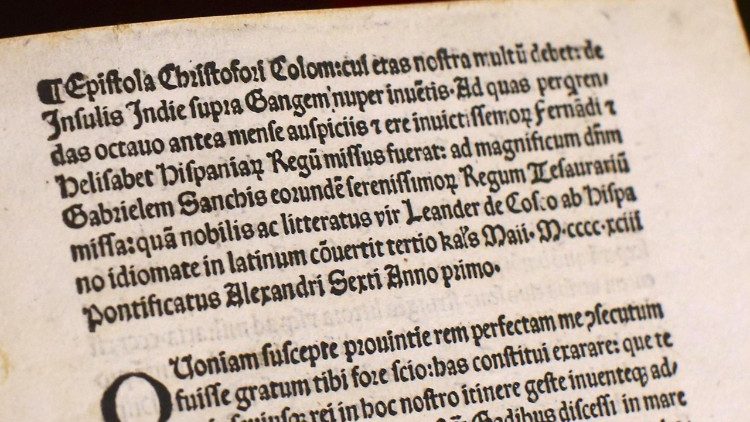 ¶ Epistola Christofori Colom: cui etas nostra multū debet: de
Insulis Indie supra Gangem nuper inuētis. Ad quas perqren-
das octauo antea mense auspiciis ⁊ ere inuictissemoꝝ Fernādi ⁊
Helisabet Hispaniaꝝ Regū missus fuerat: ad magnificum dn̄m
Gabrielem Sanchis eorundē serenissimoꝝ Regum Tesaurariū
missa: quā nobilis ac litteratus vir Leander de Cosco ab Hispa
no idiomate in latinum cōuertit tertio kal's Maii. M.cccc.xciii
Pontificatus Alexandri Sexti Anno primo.
QUoniam suscepte prouintie rem perfectam me ꝯsecutum
fuisse gratum tibi fore scio: has constitui exarare: que te
rei in hoc nostro itinere geste inuenteqꝫ ad-
Gadibus discessi in mare